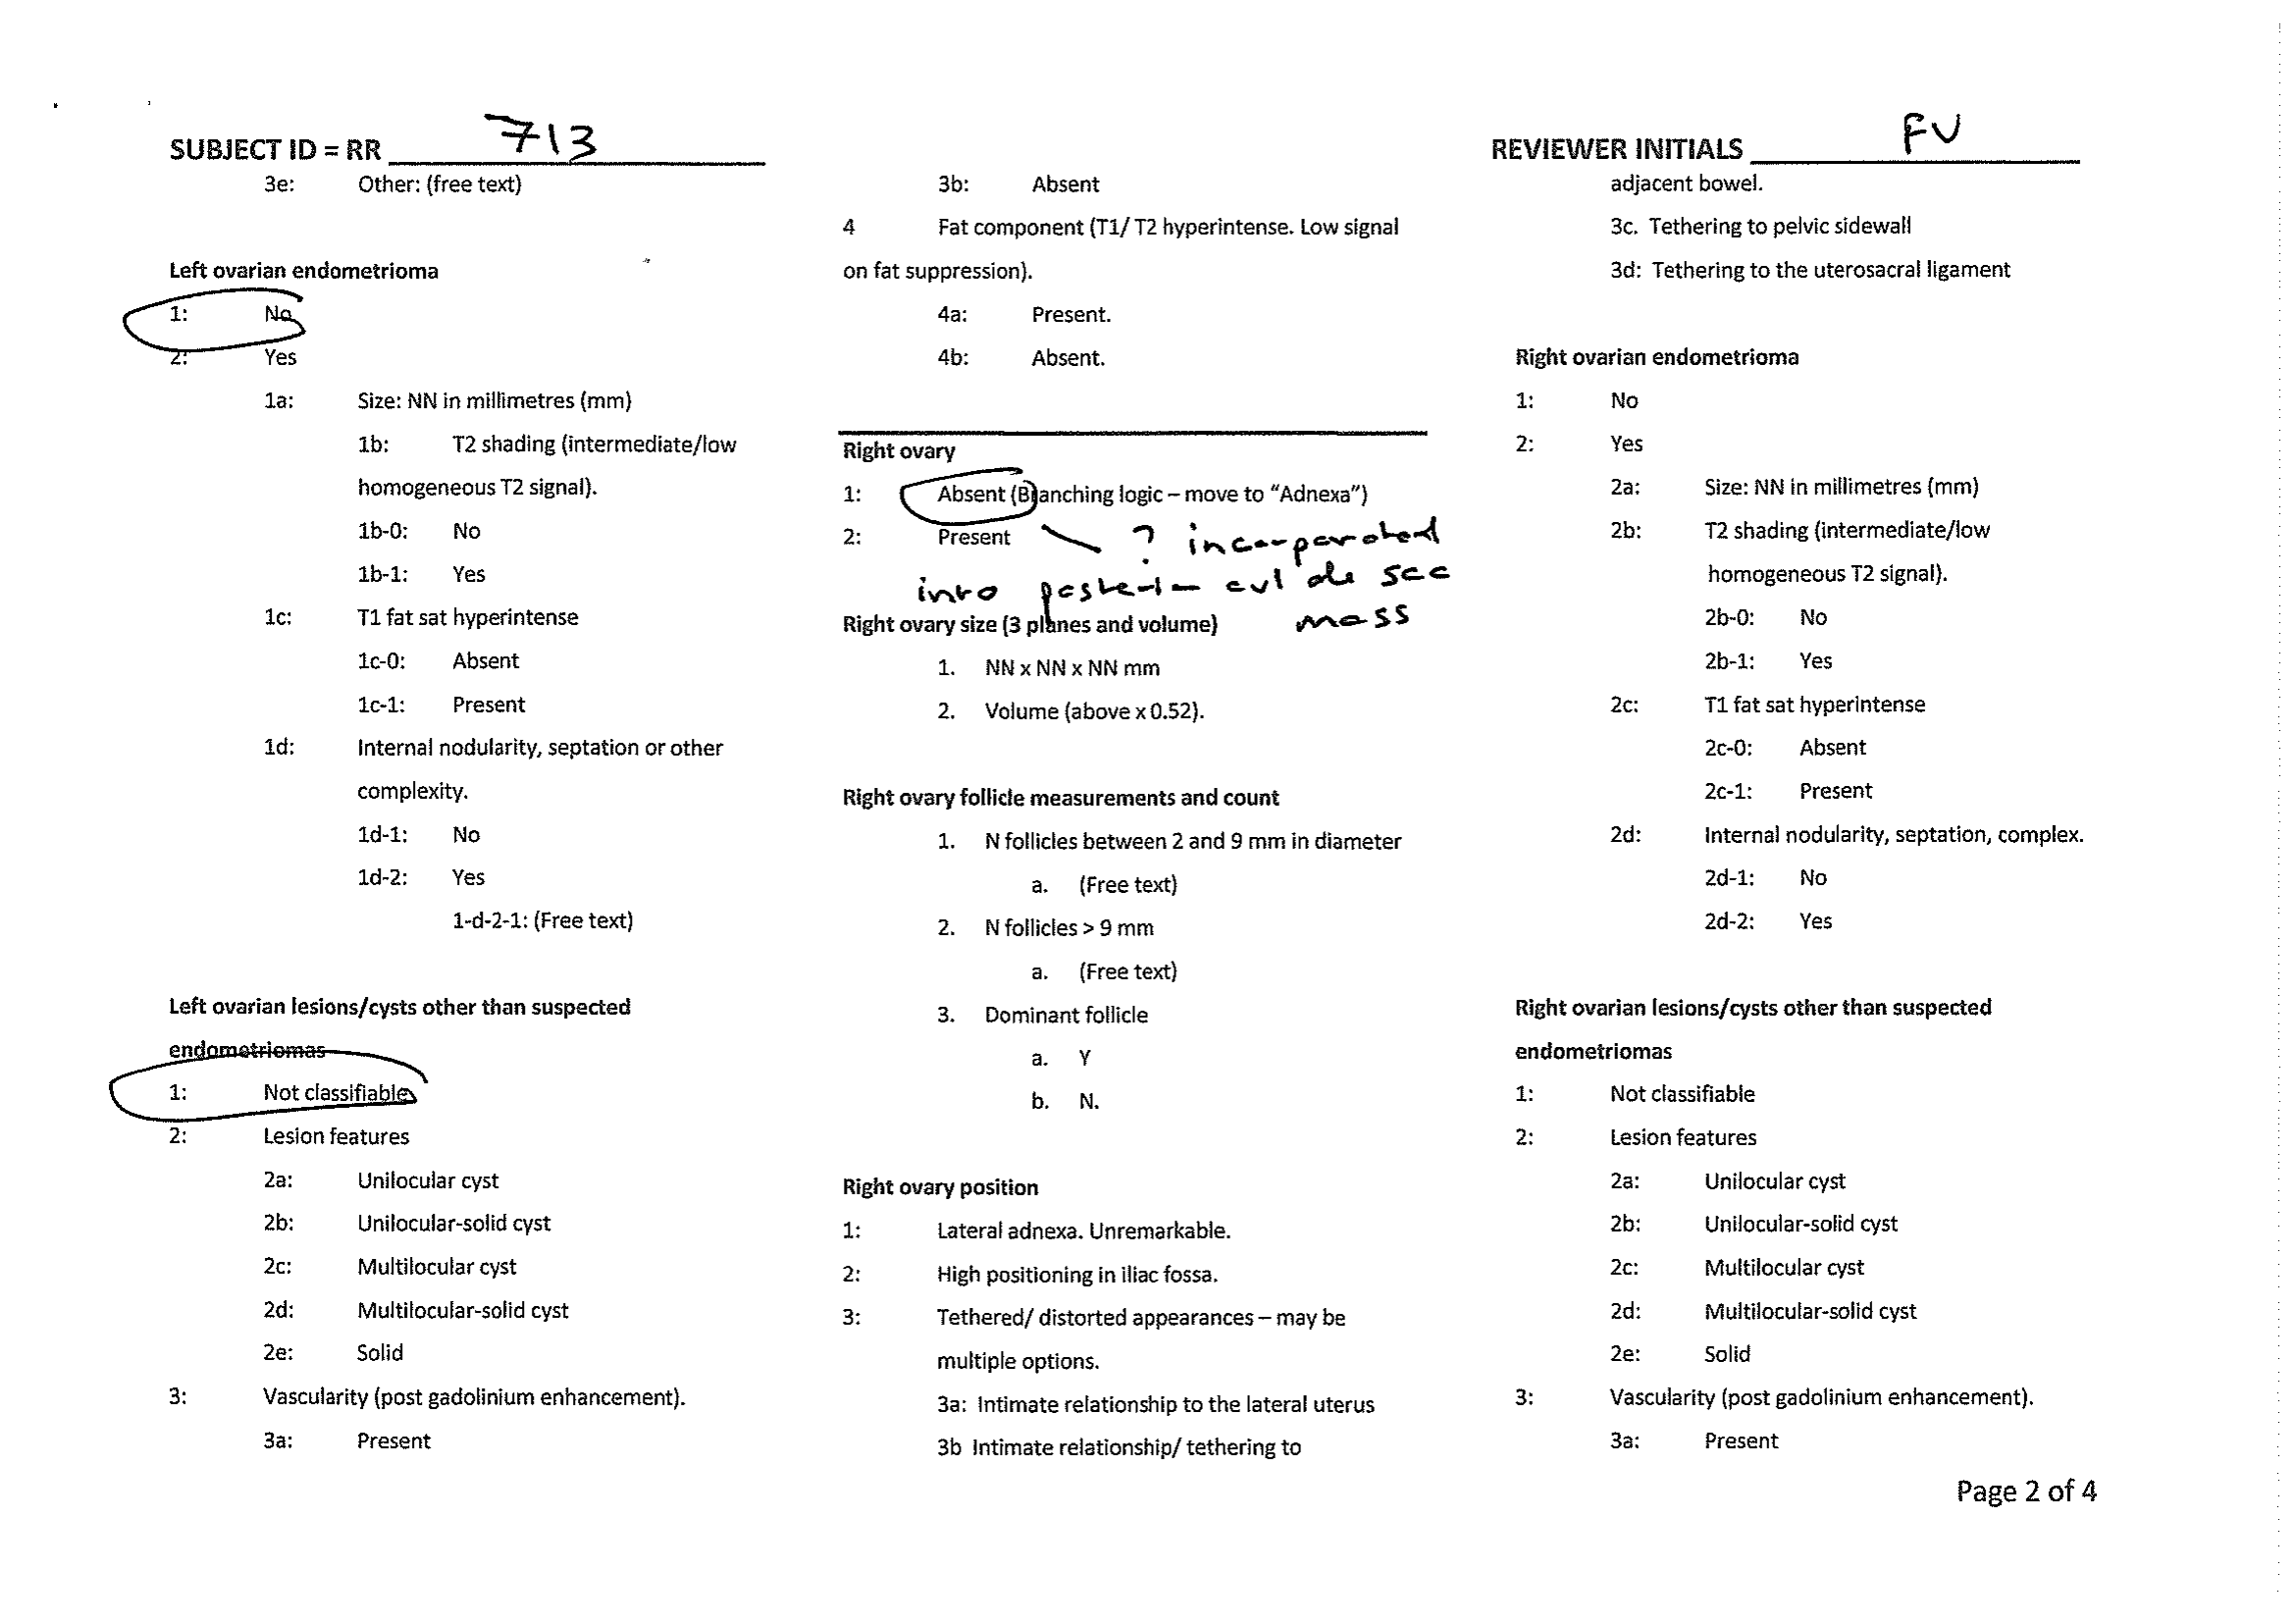 SUBJECT ID = RR 713
REVIEWER INITIALS FV
3e: Other: (free text)
Left ovarian endometrioma
1: No
2: Yes
1a: Size: NN in millimetres (mm)
1b: T2 shading (intermediate/low
homogeneous T2 signal).
1b-0: No
1b-1: Yes
1c: T1 fat sat hyperintense
1c-0: Absent
1c-1: Present
1d: Internal nodularity, septation or other
complexity.
1d-1: No
1d-2: Yes
1-d-2-1: (Free text)
Left ovarian lesions/cysts other than suspected
endometriomas
1: Not classifiable
2: Lesion features
2a: Unilocular cyst
2b: Unilocular-solid cyst
2c: Multilocular cyst
2d: Multilocular-solid cyst
2e: Solid
3: Vascularity (post gadolinium enhancement).
3a: Present
3b: Absent
4 Fat component (T1/ T2 hyperintense. Low signal
on fat suppression).
4a: Present.
4b: Absent.
Right ovary
1: Absent (Branching logic – move to "Adnexa")
2: Present
? incorporated
into posterior cul de sac
mass
Right ovary size (3 planes and volume)
1. NN x NN x NN mm
2. Volume (above x 0.52).
Right ovary follicle measurements and count
1. N follicles between 2 and 9 mm in diameter
a. (Free text)
2. N follicles > 9 mm
a. (Free text)
3. Dominant follicle
a. Y
b. N.
Right ovary position
1: Lateral adnexa. Unremarkable.
2: High positioning in iliac fossa.
3: Tethered/ distorted appearances – may be
multiple options.
3a: Intimate relationship to the lateral uterus
3b Intimate relationship/ tethering to
adjacent bowel.
3c. Tethering to pelvic sidewall
3d: Tethering to the uterosacral ligament
Right ovarian endometrioma
1: No
2: Yes
2a: Size: NN in millimetres (mm)
2b: T2 shading (intermediate/low
homogeneous T2 signal).
2b-0: No
2b-1: Yes
2c: T1 fat sat hyperintense
2c-0: Absent
2c-1: Present
2d: Internal nodularity, septation, complex.
2d-1: No
2d-2: Yes
Right ovarian lesions/cysts other than suspected
endometriomas
1: Not classifiable
2: Lesion features
2a: Unilocular cyst
2b: Unilocular-solid cyst
2c: Multilocular cyst
2d: Multilocular-solid cyst
2e: Solid
3: Vascularity (post gadolinium enhancement).
3a: Present
Page 2 of 4